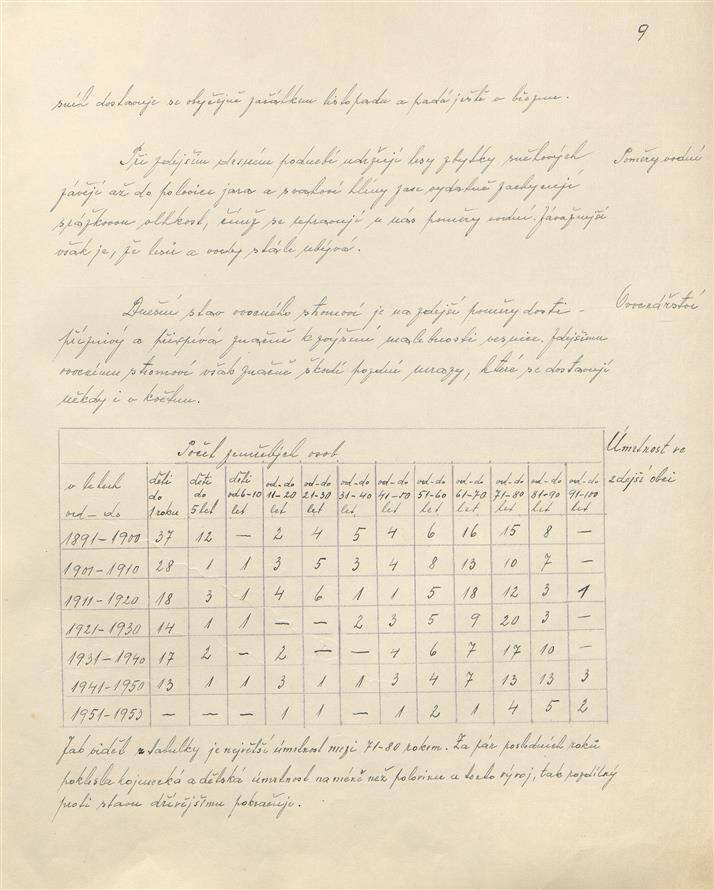 9
sníh dostavuje se obyčejně začátkem listopadu a padá ještě v březnu.
Při zdejším drsném podnebí udržují lesy zbytky sněhových
Poměry vodní
závějí až do polovice jara a svahové hlíny zase vydatně zachycují
srážkovou vlhkost, čímž se upravují u nás poměry vodní. Závažnější
však je, že lesů a vody stále ubývá.
Dnešní stav ovocného stromoví je na zdejší poměry dosti
Ovocnářství
příznivý a přispívá značně k zvýšení malebnosti vesnice. Zdejšímu
ovocnému stromoví však značně škodí pozdní mrazy, které se dostavují
někdy i v květnu.
Počet zemřelých osob
Úmrtnost ve
zdejší obci
v letech od – do | děti do 1 roku | děti do 5 let | děti od 6-10 let | od-do 11-20 let | od-do 21-30 let | od-do 31-40 let | od-do 41-50 let | od-do 51-60 let | od-do 61-70 let | od-do 71-80 let | od-do 81-90 let | od-do 91-100 let
1891-1900 37 12 – 2 4 5 4 6 16 15 8 –
1901-1910 28 1 1 3 5 3 4 8 13 10 7 –
1911-1920 18 3 1 4 6 1 1 5 18 12 3 1
1921-1930 14 1 1 – – 2 3 5 9 20 3 –
1931-1940 17 2 – 2 – – 4 6 7 17 10 –
1941-1950 13 1 1 3 1 1 3 4 7 13 13 3
1951-1953 – – – 1 1 – 1 2 1 4 5 2
Jak vidět z tabulky je největší úmrtnost mezi 71-80 rokem. Za pár posledních roků
poklesla kojenecká a dětská úmrtnost na méně než polovinu a tento vývoj, tak rozdílný
proti stavu dřívějšímu pokračuje.